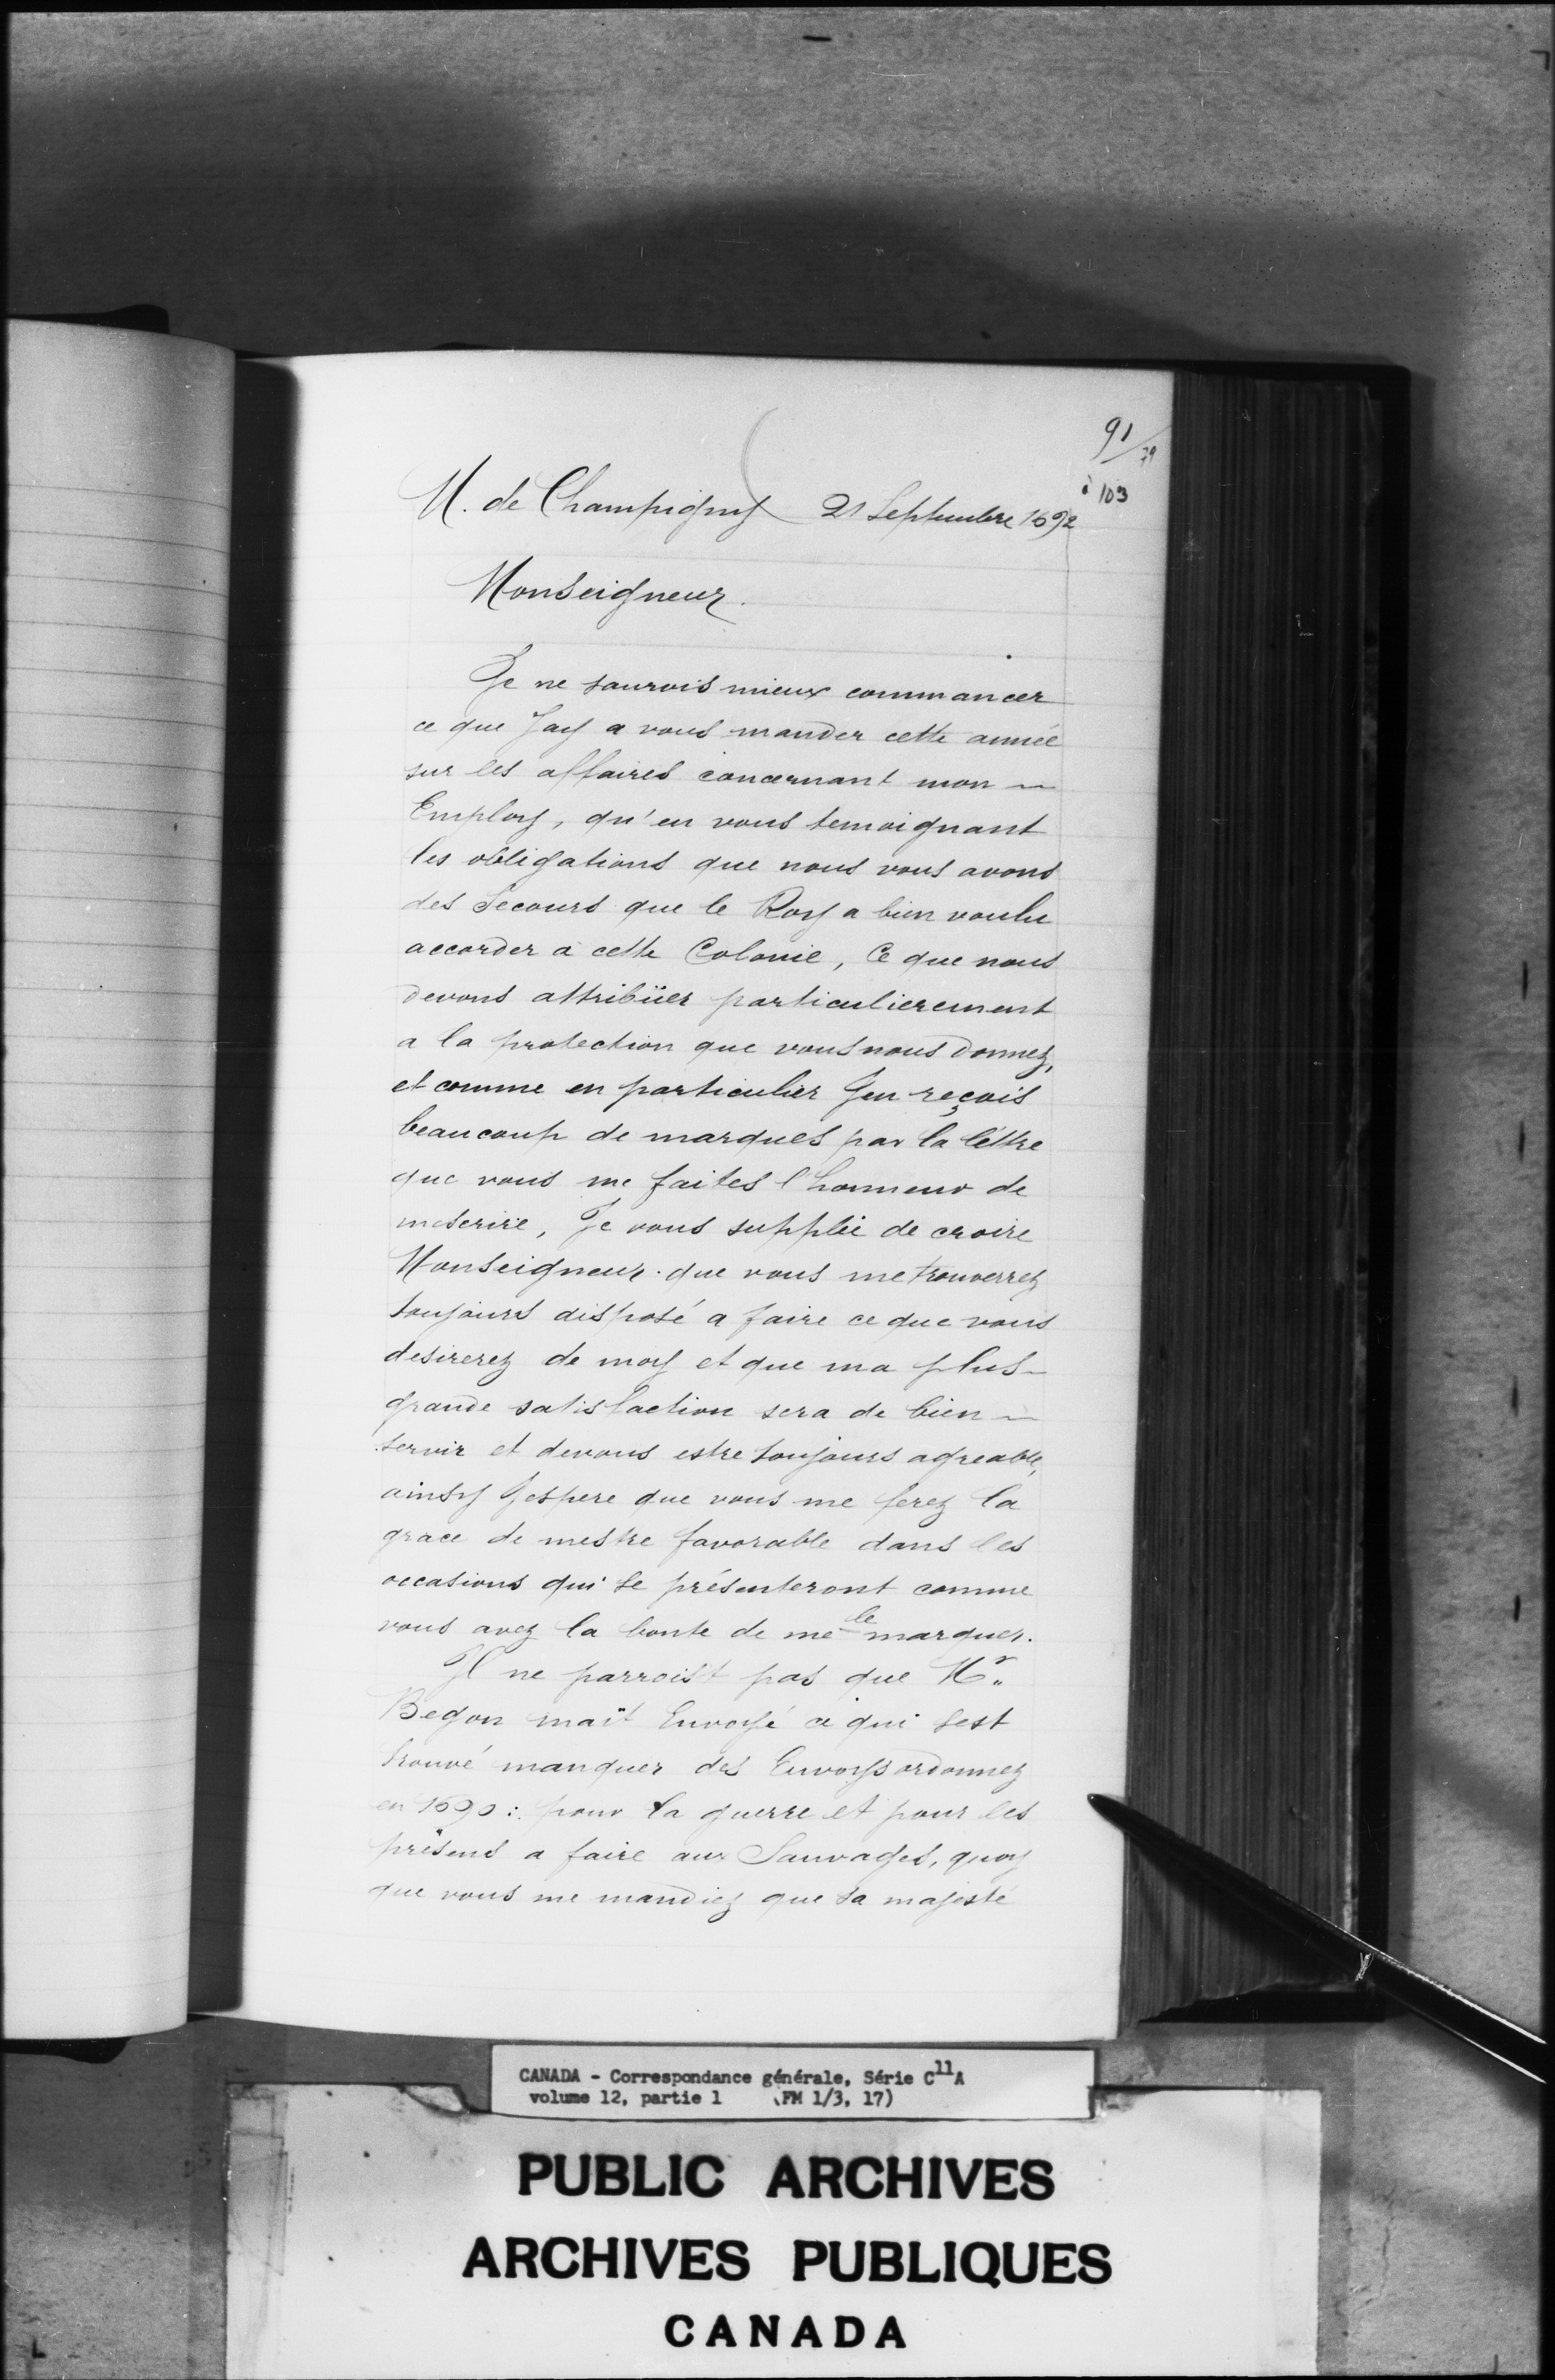 91/79
à 103
M. de Champigny 21 Septembre 1692
Monseigneur.
Je ne saurois mieux commancer
ce que Jay a vous mander cette année
sur les affaires concernant mon
Employ, qu'en vous temoignant
les obligations que nous vous avons
des Secours que le Roy a bien voulu
accorder à cette Colonie, Ce que nous
devons attribüer particulierement
a la protection que vous nous donnez,
et comme en particulier Jen reçois
beaucoup de marques par la léttre
que vous me faites l'honneur de
mescrire, Je vous supplie de croire
Monseigneur. que vous me trouverrez
toujours disposé a faire ce que vous
desirerez de moy et que ma plus
grande satisfaction sera de bien
servir et devous estre toujours agreable,
ainsy Jespere que vous me ferez la
grace de mestre favorable dans les
occasions qui se présenteront comme
vous avez la bonte de me le marquer.
Il ne parroist pas que Mr.
Begon mait Envoyé ce qui sest
trouvé manquer des Envoys ordonnez
en 1690: pour la guerre et pour les
présens a faire aux Sauvages, quoy
que vous me mandiez que sa majesté
CANADA - Correspondance générale, Série C11A
volume 12, partie 1 (FM 1/3, 17)
PUBLIC ARCHIVES
ARCHIVES PUBLIQUES
CANADA